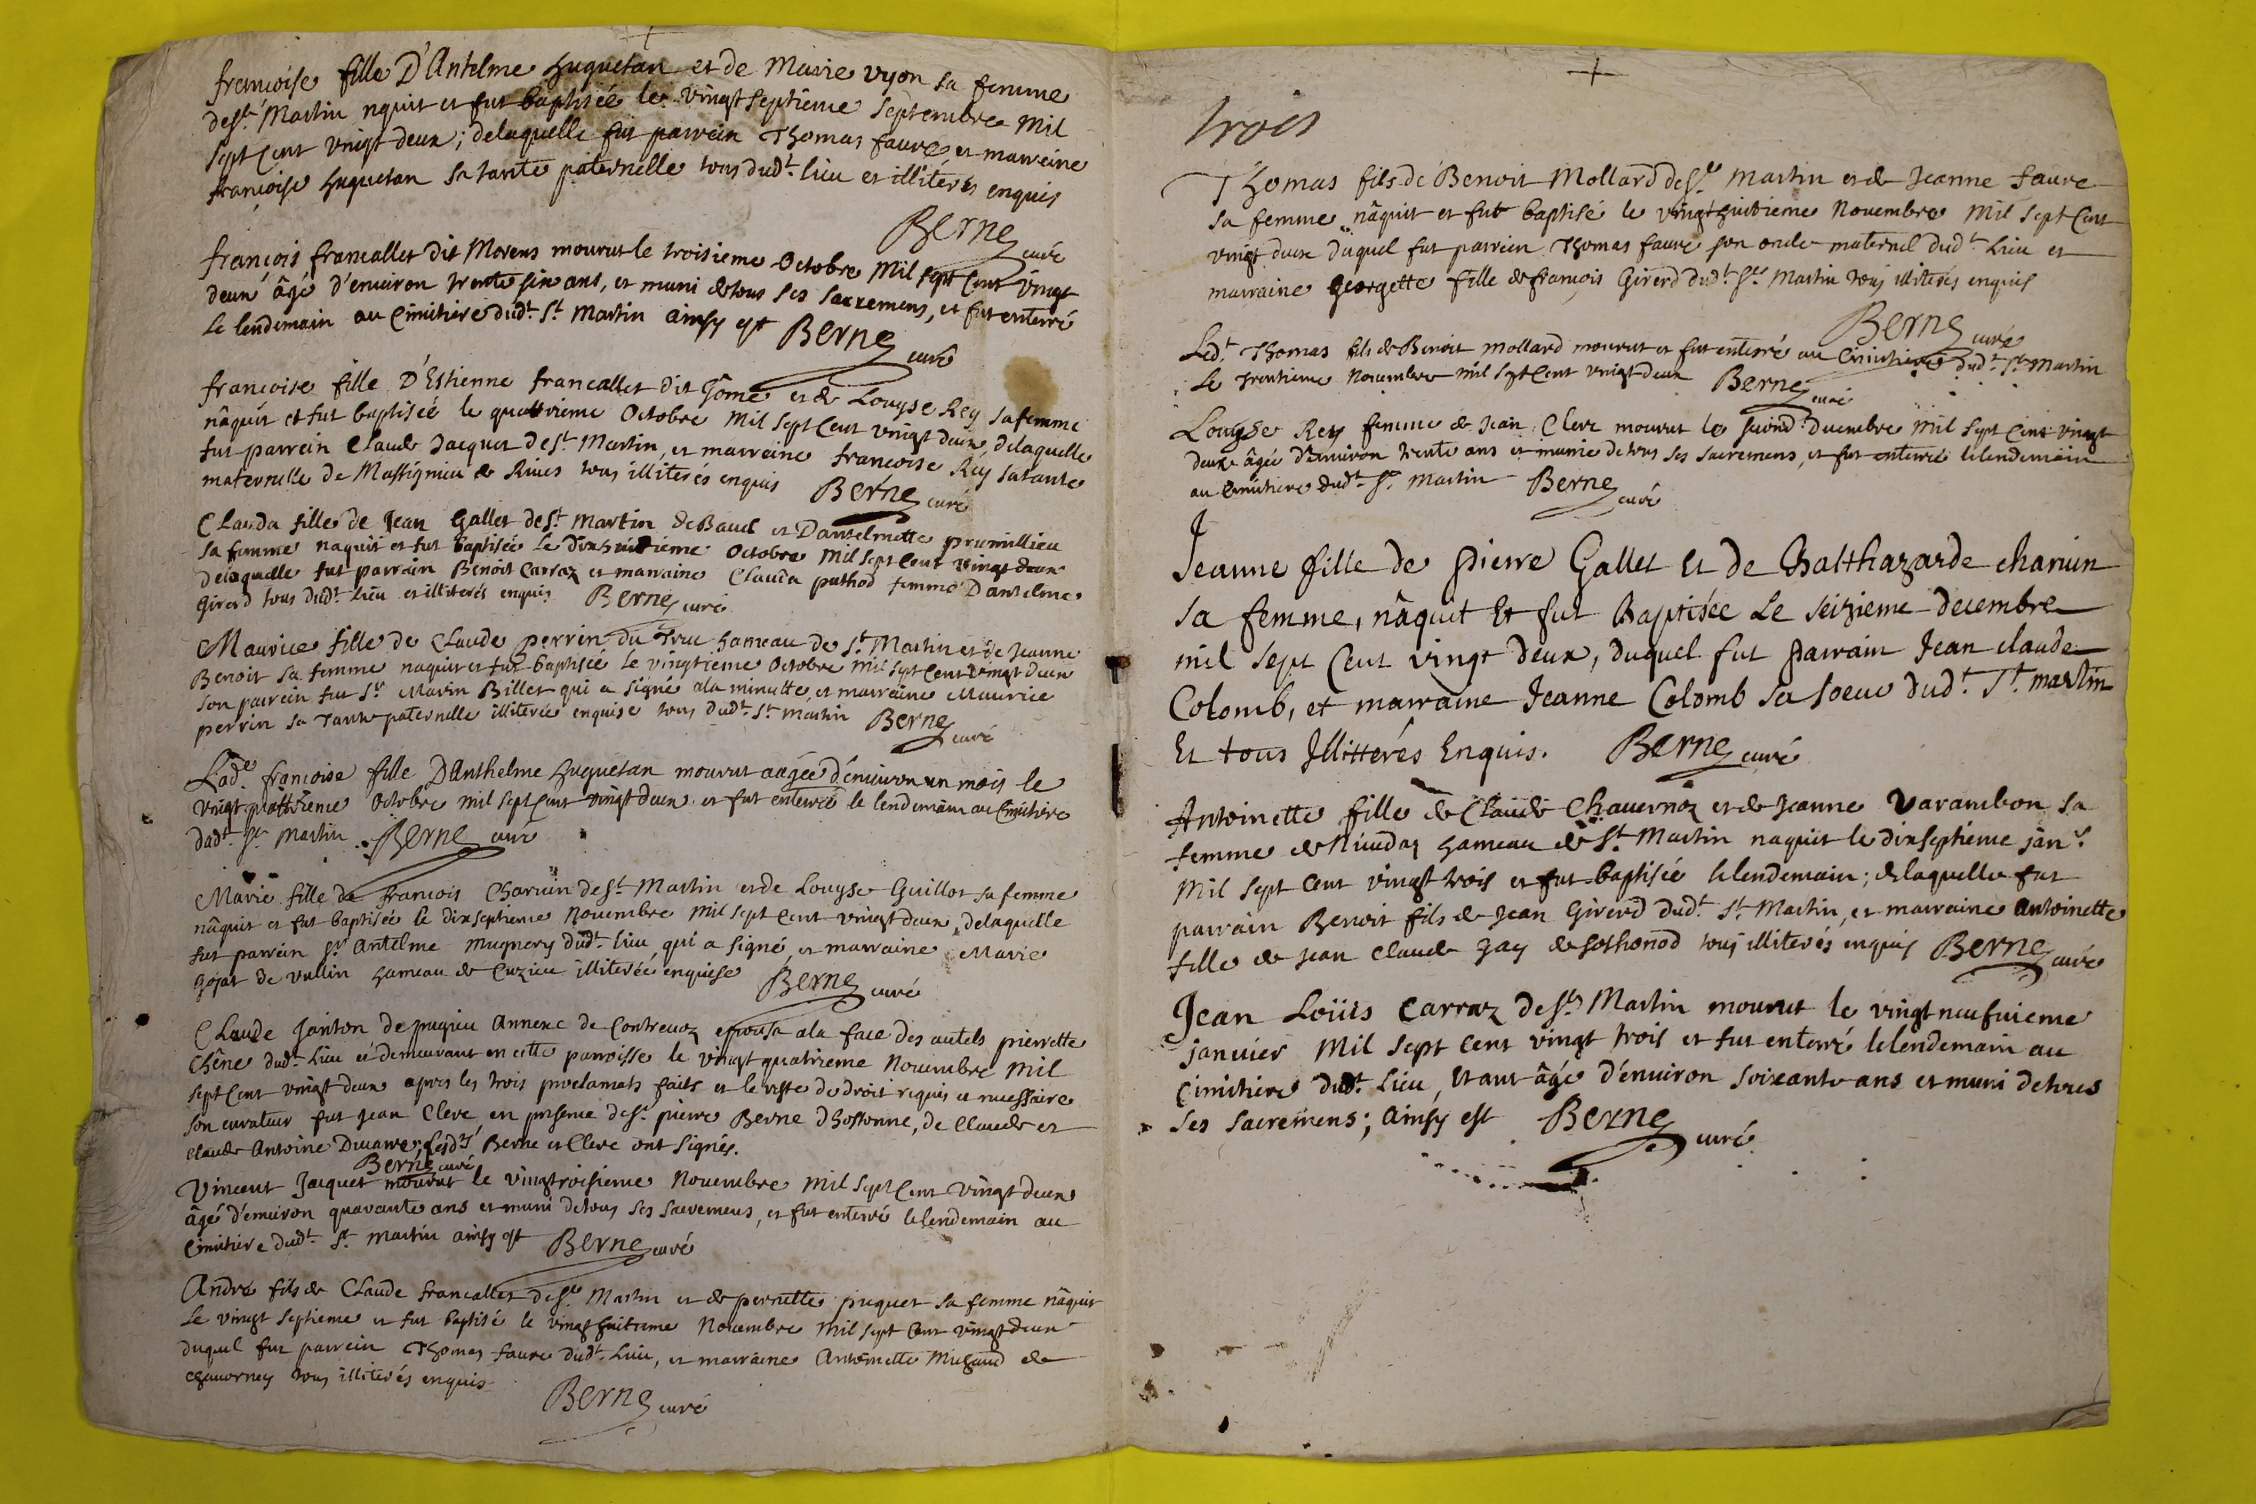 françoise fille D'Antelme huguetan et de Marie vyon sa femme
de st. Martin nquit et fut baptisée le vingt septieme septembre mil
sept cent vingt deux; delaquelle fut parrein Thomas faure et marreine
françoise huguetan sa tante paternelle tous dudt. lieu et illiterés enquis
Berne curé
françois francallet dit Morens mourut le troisieme Octobre mil sept cent vingt
deux âgé d'environ trente six ans, et muni de tous ses sacremens, et fut enterré
le lendemain au Cimitiere dudt. st. Martin ainsy est Berne curé
françoise fille D'Estienne francallet dit Gôme et de Louyse Rey sa femme
nâquit et fut baptisée le quatrieme Octobre mil sept cent vingt deux, delaquelle
fut parrein Claude Jacquet de st. Martin, et marreine francoise Rey sa tante
maternelle de Massignieu de Rives tous illiterés enquis Berne curé
Clauda fille de Jean Gallet de st. Martin de Bavel et Dantelmette prumillieu
sa femme naquit et fut baptisée le dixhuitieme Octobre mil sept cent vingt deux
delaquelle fut parrain Benoit Carraz et marraine Clauda puthod femme D'antelme
Girerd tous dudt. lieu et illiterés enquis Berne curé
Maurice fille de Claude perrin du Truc hameau de st. Martin et de Jeanne
Benoit sa femme naquit et fut baptisée le vingtieme Octobre mil sept cent vingt deux
son parrein fut sr. Marin Billet qui a signé ala minutte, et marraine Maurice
perrin sa Tante paternelle illiterée enquise tous dudt. st. Martin Berne curé
Lade. françoise fille D'Anthelme huguetan mourut aagée d'environ un mois le
vingt quattrieme Octobre mil sept cent vingt deux et fut enterrée le lendemain au Cimitiere
dudt. st. Martin. Berne curé
Marie fille de françois Charvin de st. Martin et de Louyse Guillot sa femme
nâquit et fut baptisée le dixseptieme Novembre mil sept cent vingt deux, delaquelle
fut parrein sr. Antelme mugnery dudt. lieu qui a signé, et marraine Marie
gojat de vullin hameau de Cuzieu illiterée enquise Berne curé
Claude Janton de pugieu Annexe de Contrevoz epousa ala face des autels pierrette
Chêne dudt. lieu et demeurant en cette parroisse le vingt quatrieme Novembre mil
sept cent vingt deux apres les trois proclamats faits et le reste de droit requis et necessaire
son curateur fut Jean Clerc en presence de sr. pierre Berne d'hostonne, de Claude et
claude Antoine Ducarre; Lesdts. Berne et Clerc ont signés.
Berne curé
Vincent Jacquet mourut le vingtroisieme Novembre mil sept cent vingt deux
âgé d'environ quarante ans et muni de tous ses sacremens, et fut enterré le lendemain au
Cimitiere dudt. st. Martin ainsy est Berne curé
André fils de Claude francallet de st. Martin et de pernette puguet sa femme nâquit
le vingt septieme et fut baptisé le vingt huitieme Novembre mil sept cent vingt deux
duquel fut parrein Thomas faure dudt. lieu, et marraine Antoinette Michaud de
chavorney tous illiterés enquis
Berne curé
trois
Thomas fils de Benoit Mollard de st. Martin et de Jeanne faure
sa femme nâquit et fut baptisé le vingt huitieme Novembre mil sept cent
vingt deux duquel fut parrein Thomas faure son oncle maternel dudt. lieu et
marraine Georgette fille de françois Girerd dudt. st. Martin tous illiterés enquis
Berne curé
Ledt. Thomas fils de Benoit mollard mourut et fut enterré au Cimitiere dudt. st. Martin
le trentieme Novembre mil sept cent vingt deux Berne curé
Louyse Rey femme de Jean Clerc mourut le second decembre mil sept cent vingt
deux âgée d'environ trente ans et munie de tous ses sacremens, et fut enterrée le lendemain
au Cimitiere dudt. st. Martin Berne curé
Jeanne fille de pierre Gallet Et de Balthazarde charvin
sa femme, nâquit Et fut Baptisée Le seizieme decembre
mil sept Cent vingt deux, duquel fut parrain Jean claude
Colomb, et marraine Jeanne Colomb sa soeur dudt. St. martin
Et tous Jllitterés Enquis. Berne curé
Antoinette fille de Claude Chavernoz et de Jeanne varambon sa
femme de hameau de st. Martin naquit le dixseptieme janr.
Mil sept cent vingt trois et fut baptisée le lendemain; delaquelle fut
parrain Benoit fils de Jean Girerd dudt. st. Martin, et marraine Antoinette
fille de Jean Claude Jay de sothonod tous illiterés enquis Berne curé
Jean Loüis Carraz de st. Martin mourut le vingt neufvieme
janvier Mil sept cent vingt trois et fut enterré le lendemain au
Cimitiere dudt. lieu, etant âgé d'environ soixante ans et muni de tous
ses sacremens; ainsy est Berne curé